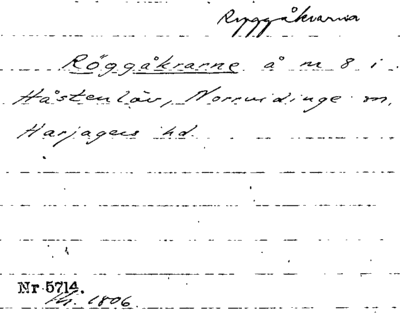 Ryggåkrarna
Röggåkrarne å n 8 i
Håstenlöv, Norrvidinge sn,
Harjagers hd.
Nr 5714.
1806.